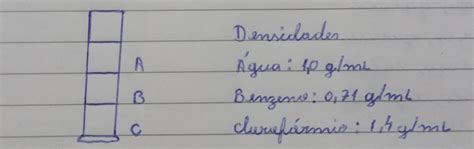 Densidades
A Água: 1,0 g/mL
B Benzeno: 0,71 g/mL
C clurofórmio: 1,4 g/mL